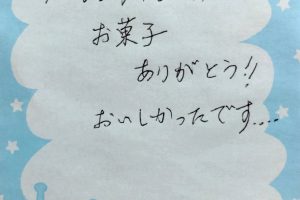 お菓子
ありがとう!!
おいしかったです....